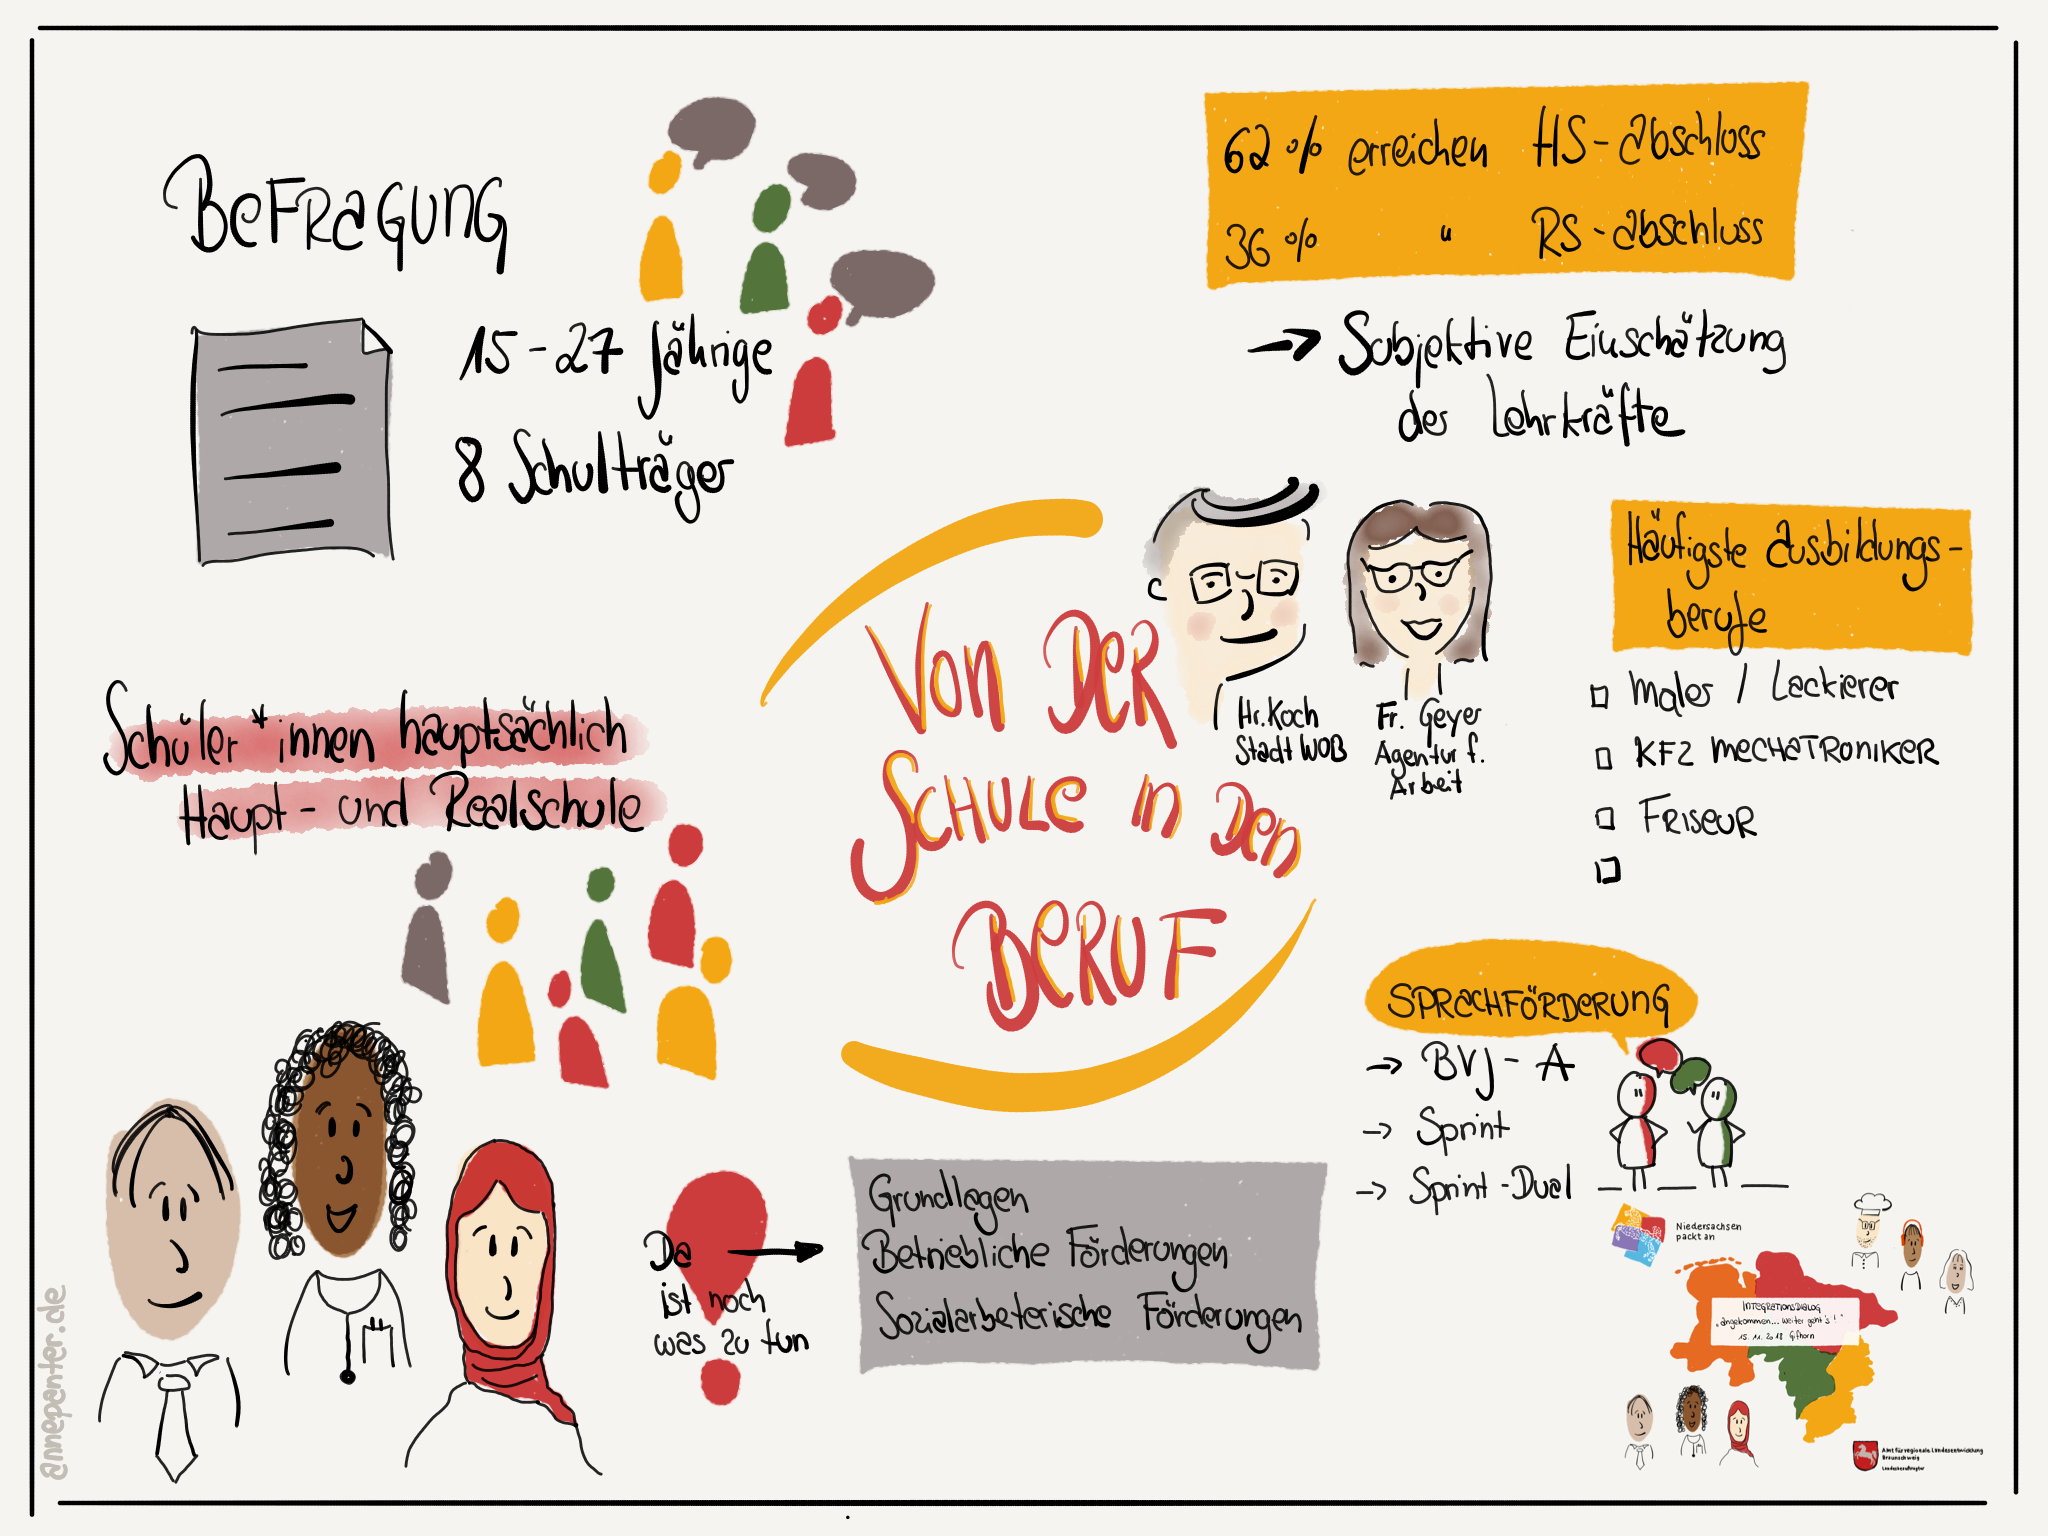 BEFRAGUNG
15-27 Jährige
8 Schulträger
62 % erreichen HS-abschluss
36 % " RS-abschluss
→ Subjektive Einschätzung
der Lehrkräfte
Schüler*innen hauptsächlich
Haupt- und Realschule
VON DER
SCHULE IN DEN
BERUF
Hr. Koch
Stadt WOB
Fr. Geyer
Agentur f.
Arbeit
Häufigste Ausbildungs-
berufe
Maler / Lackierer
KFZ MECHATRONIKER
FRISEUR
SPRACHFÖRDERUNG
→ BVJ-A
→ Sprint
→ Sprint-Dual
Da
ist noch
was zu tun
Grundlagen
Betriebliche Förderungen
Sozialarbeterische Förderungen
Niedersachsen
packt an
INTEGRATIONSDIALOG
"angekommen... weiter geht's!"
15. 11. 2018 Gifhorn
Amt für regionale Landesentwicklung
Braunschweig
Landesbeauftragter
annepenter.de